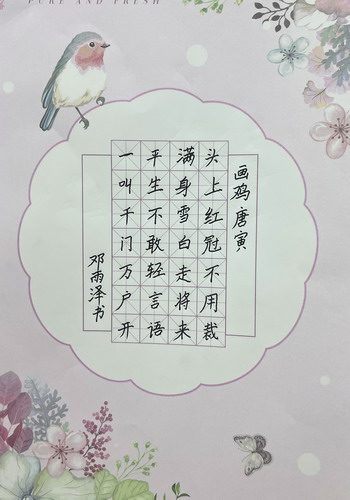 PURE AND FRESH
画鸡唐寅
头上红冠不用裁
满身雪白走将来
平生不敢轻言语
一叫千门万户开
邓雨泽书